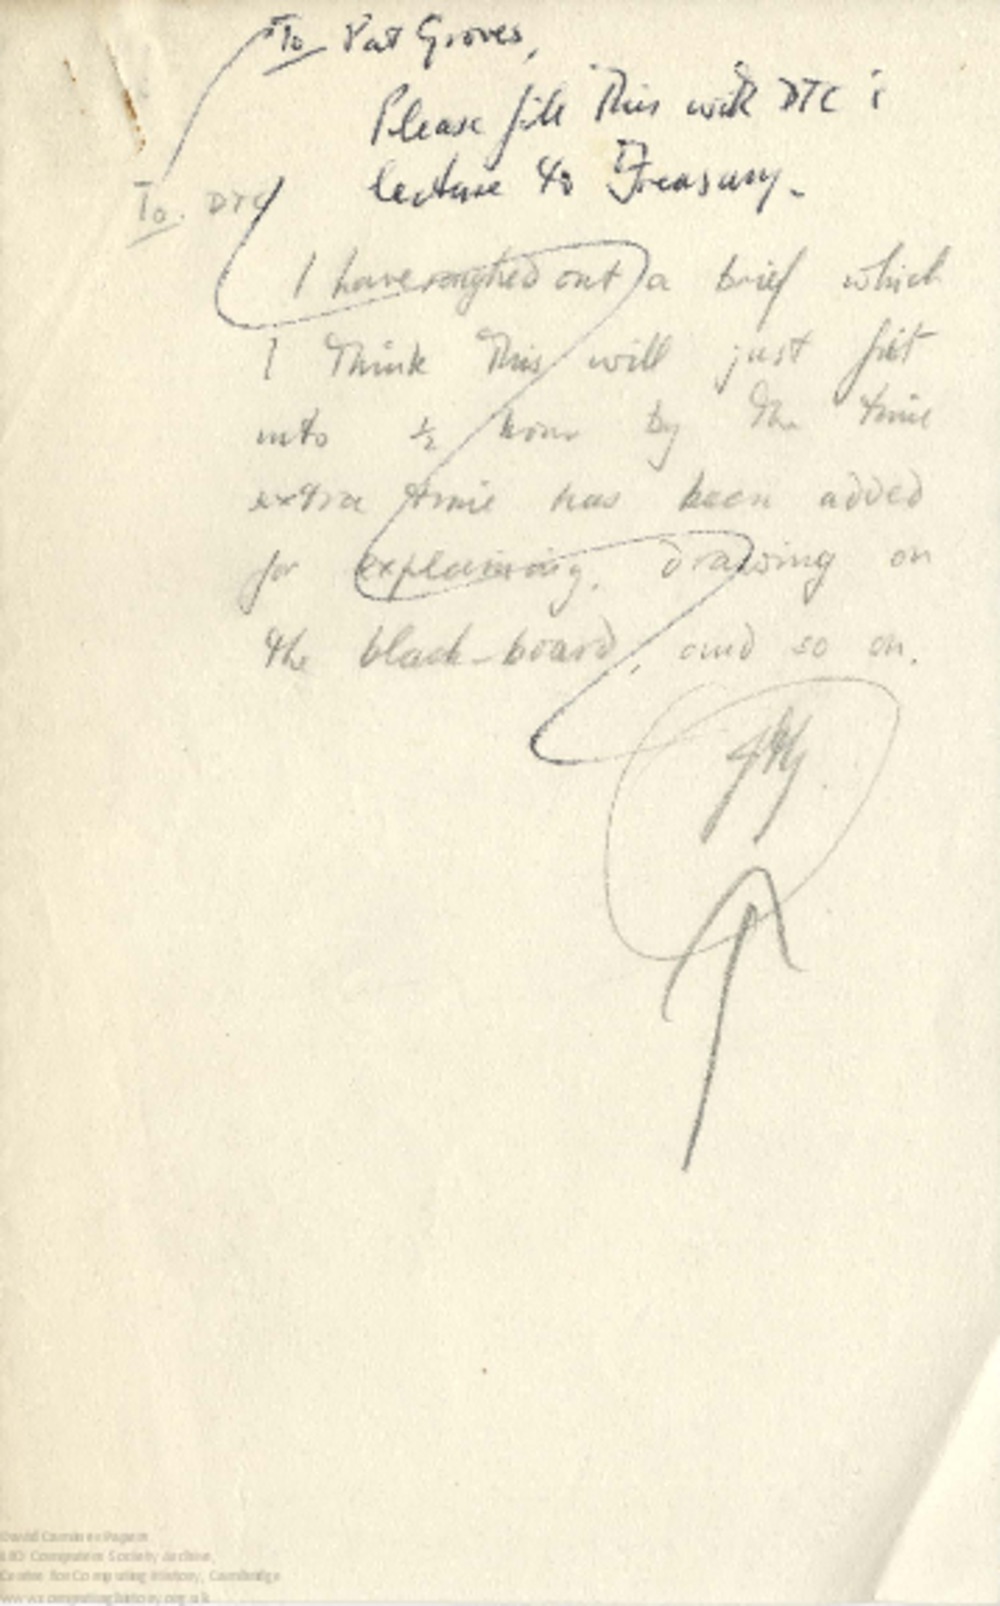 To Pat Groves,
Please file this with DTC's
lecture to Treasury.
To. DTC
I have roughed out a brief which
I think this will just fit
into ½ hour by the time
extra time has been added
for explaining, drawing on
the black-board, and so on.
David Caminer Papers
LEO Computers Society Archive,
Centre for Computing History, Cambridge
www.computinghistory.org.uk